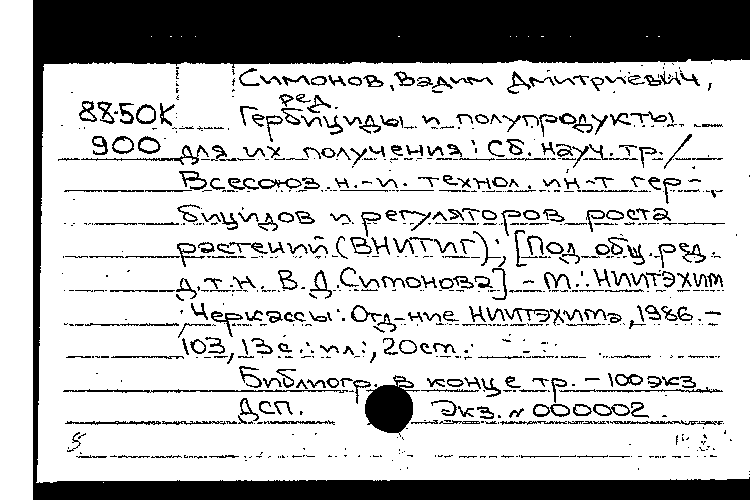 Симонов, Вадим Дмитриевич,
ред.
88-50К Гербициды и полупродукты
900 для их получения: Сб. науч. тр. /
Всесоюз. н.-и. технол. ин-т гер-
бицидов и регуляторов роста
растений (ВНИТИГ); [Под общ. ред.
д.т.н. В.Д. Симонова] - М.: НИИТЭХИМ
; Черкассы: Отд-ние НИИТЭХИМа, 1986. -
103, 13 с.: ил.; 20 см.
Библиогр. в конце тр. - 100 экз.
ДСП. Экз. N 000002.